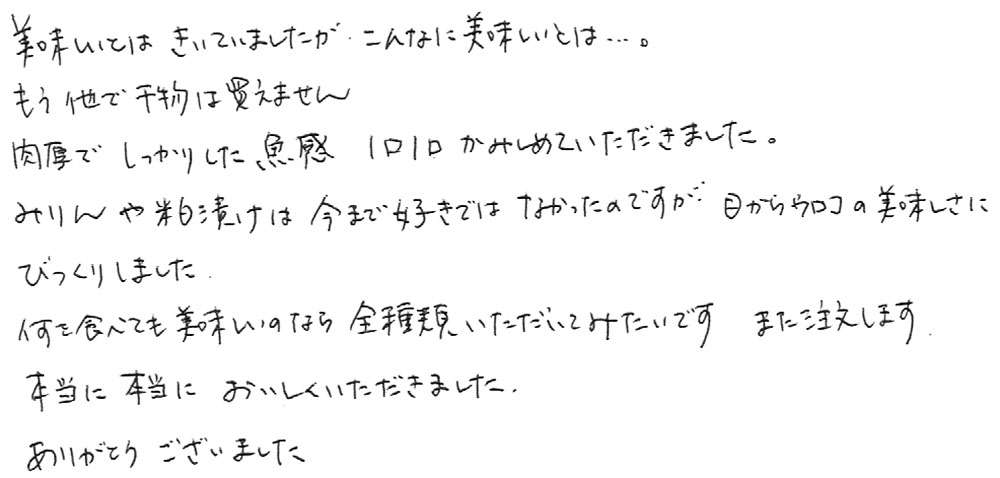 美味いとは きいていましたが こんなに美味いとは…。
もう他で干物は買えません
肉厚で しっかりした魚感 1口1口 かみしめていただきました。
みりんや粕漬けは 今まで好きでは なかったのですが 目からウロコの美味しさに
びっくりしました.
何を食べても美味いのなら 全種類いただいてみたいです また注文します.
本当に 本当に おいしくいただきました.
ありがとう ございました